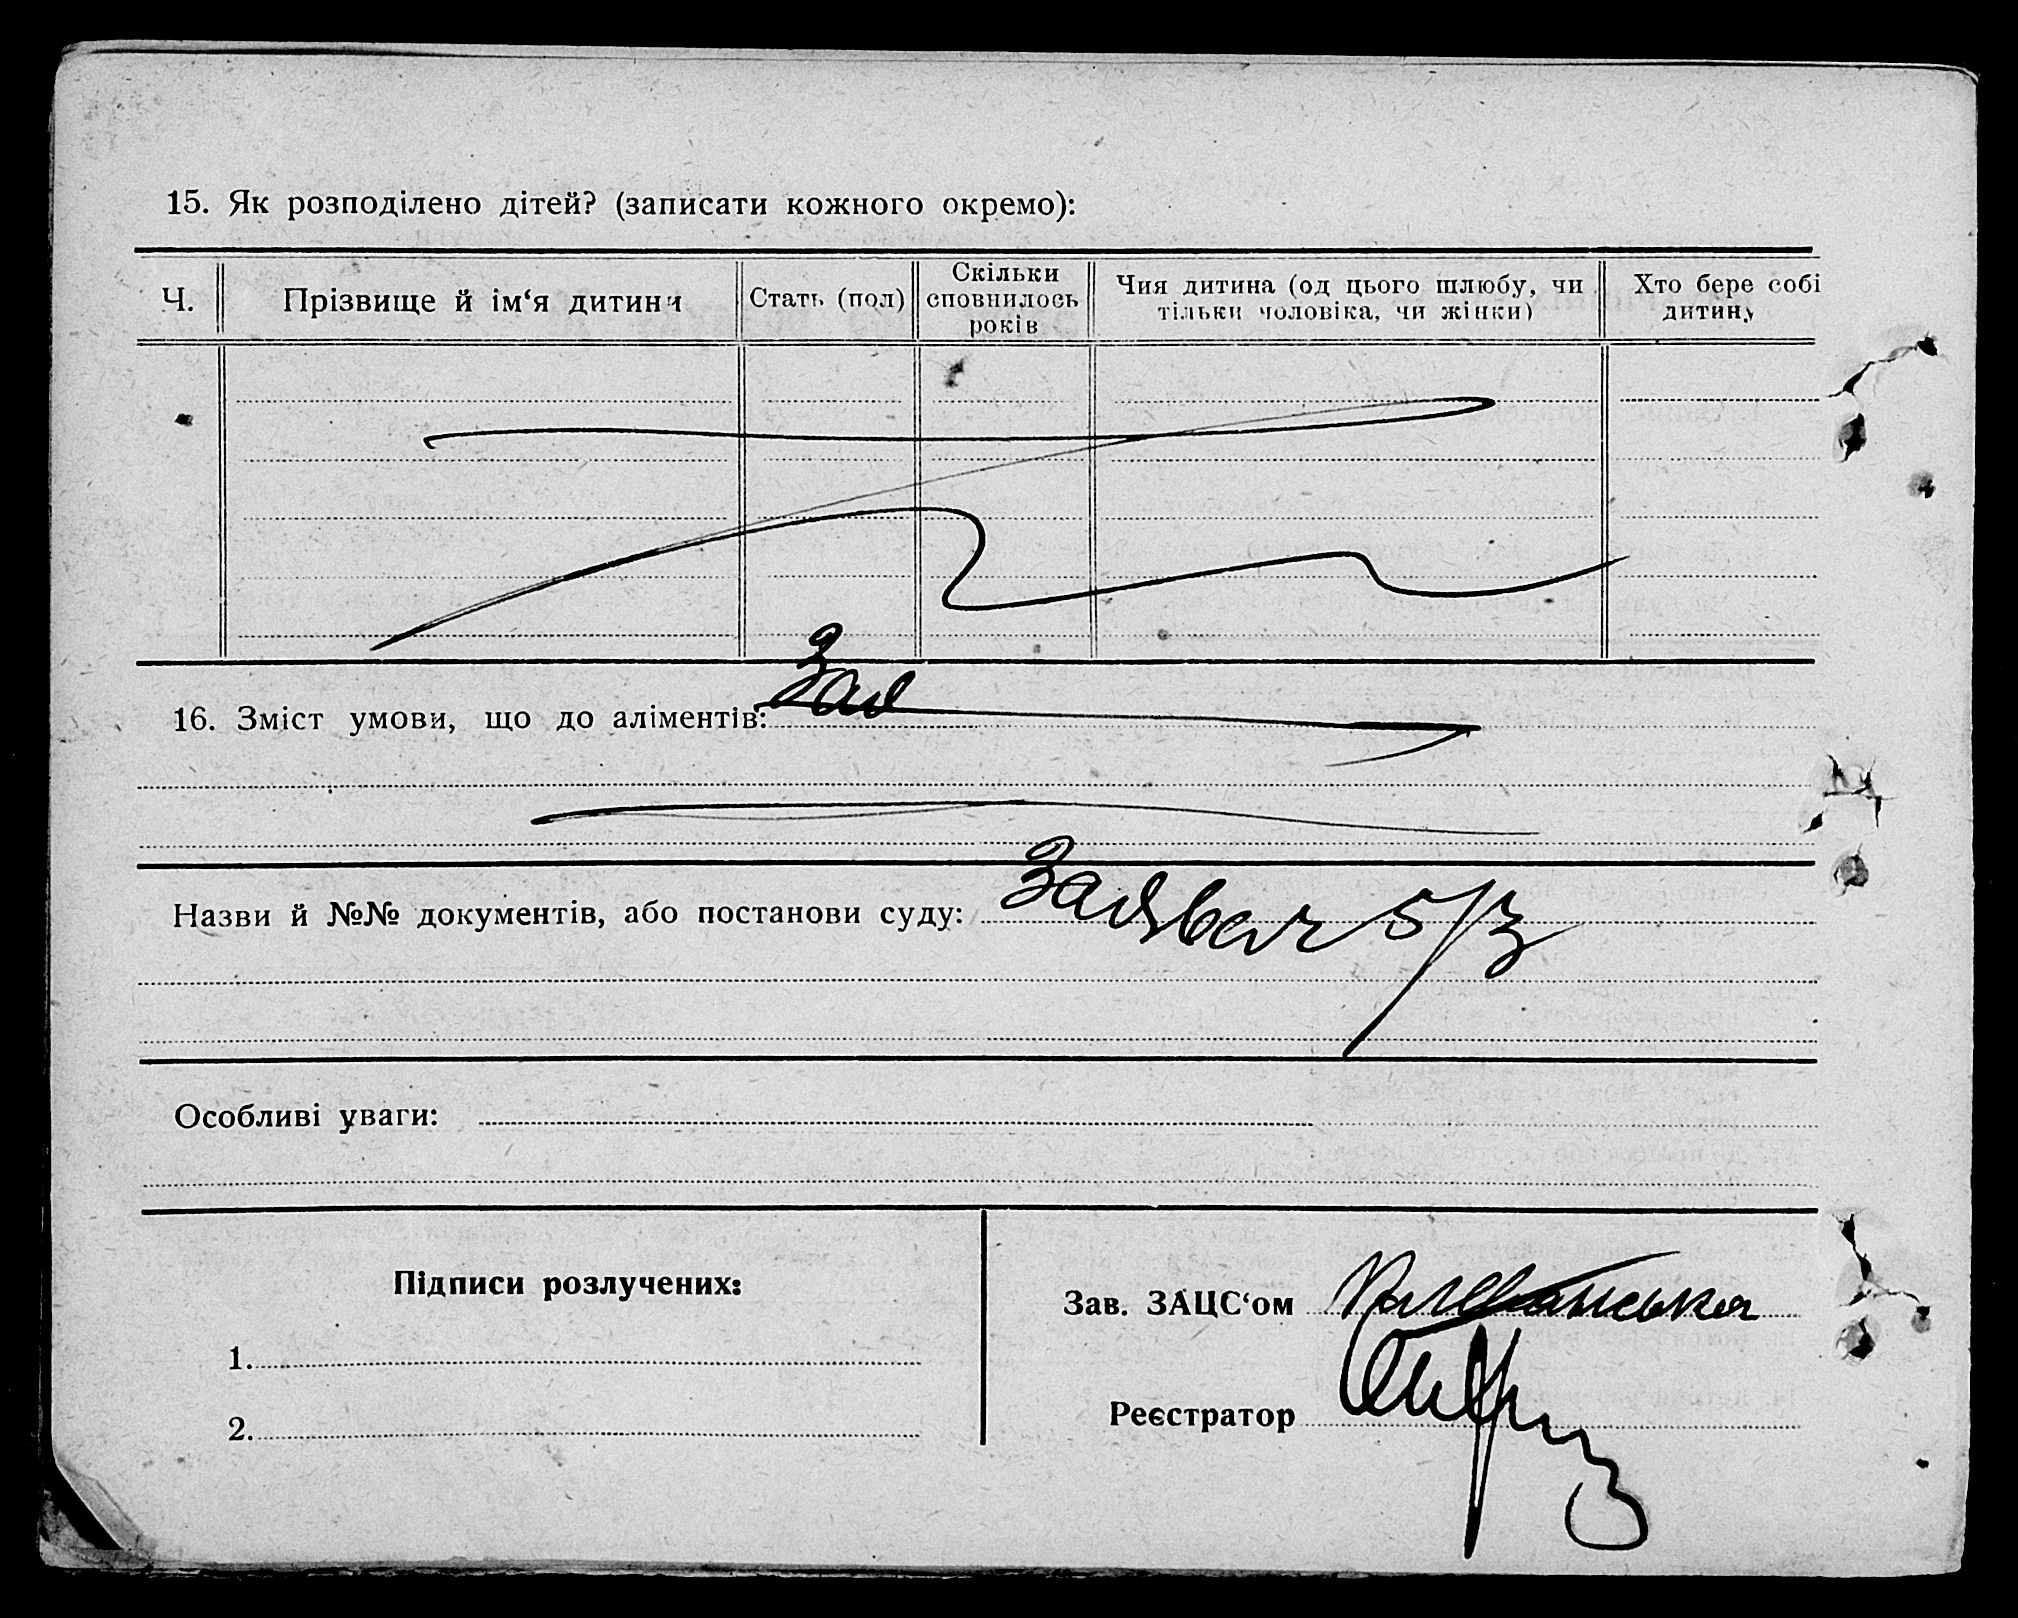 15. Як розподілено дітей? (записати кожного окремо):
Ч.
Прізвище й ім‘я дитини
Стать (пол)
Скільки сповнилось років
Чия дитина (од цього шлюбу, чи тільки чоловіка, чи жінки)
Хто бере собі дитину
16. Зміст умови, що до аліментів: Зая
Назви й №№ документів, або постанови суду: Заява ч 5/3
Особливі уваги:
Підписи розлучених:
1.
2.
Зав. ЗАЦС‘ом
Реєстратор